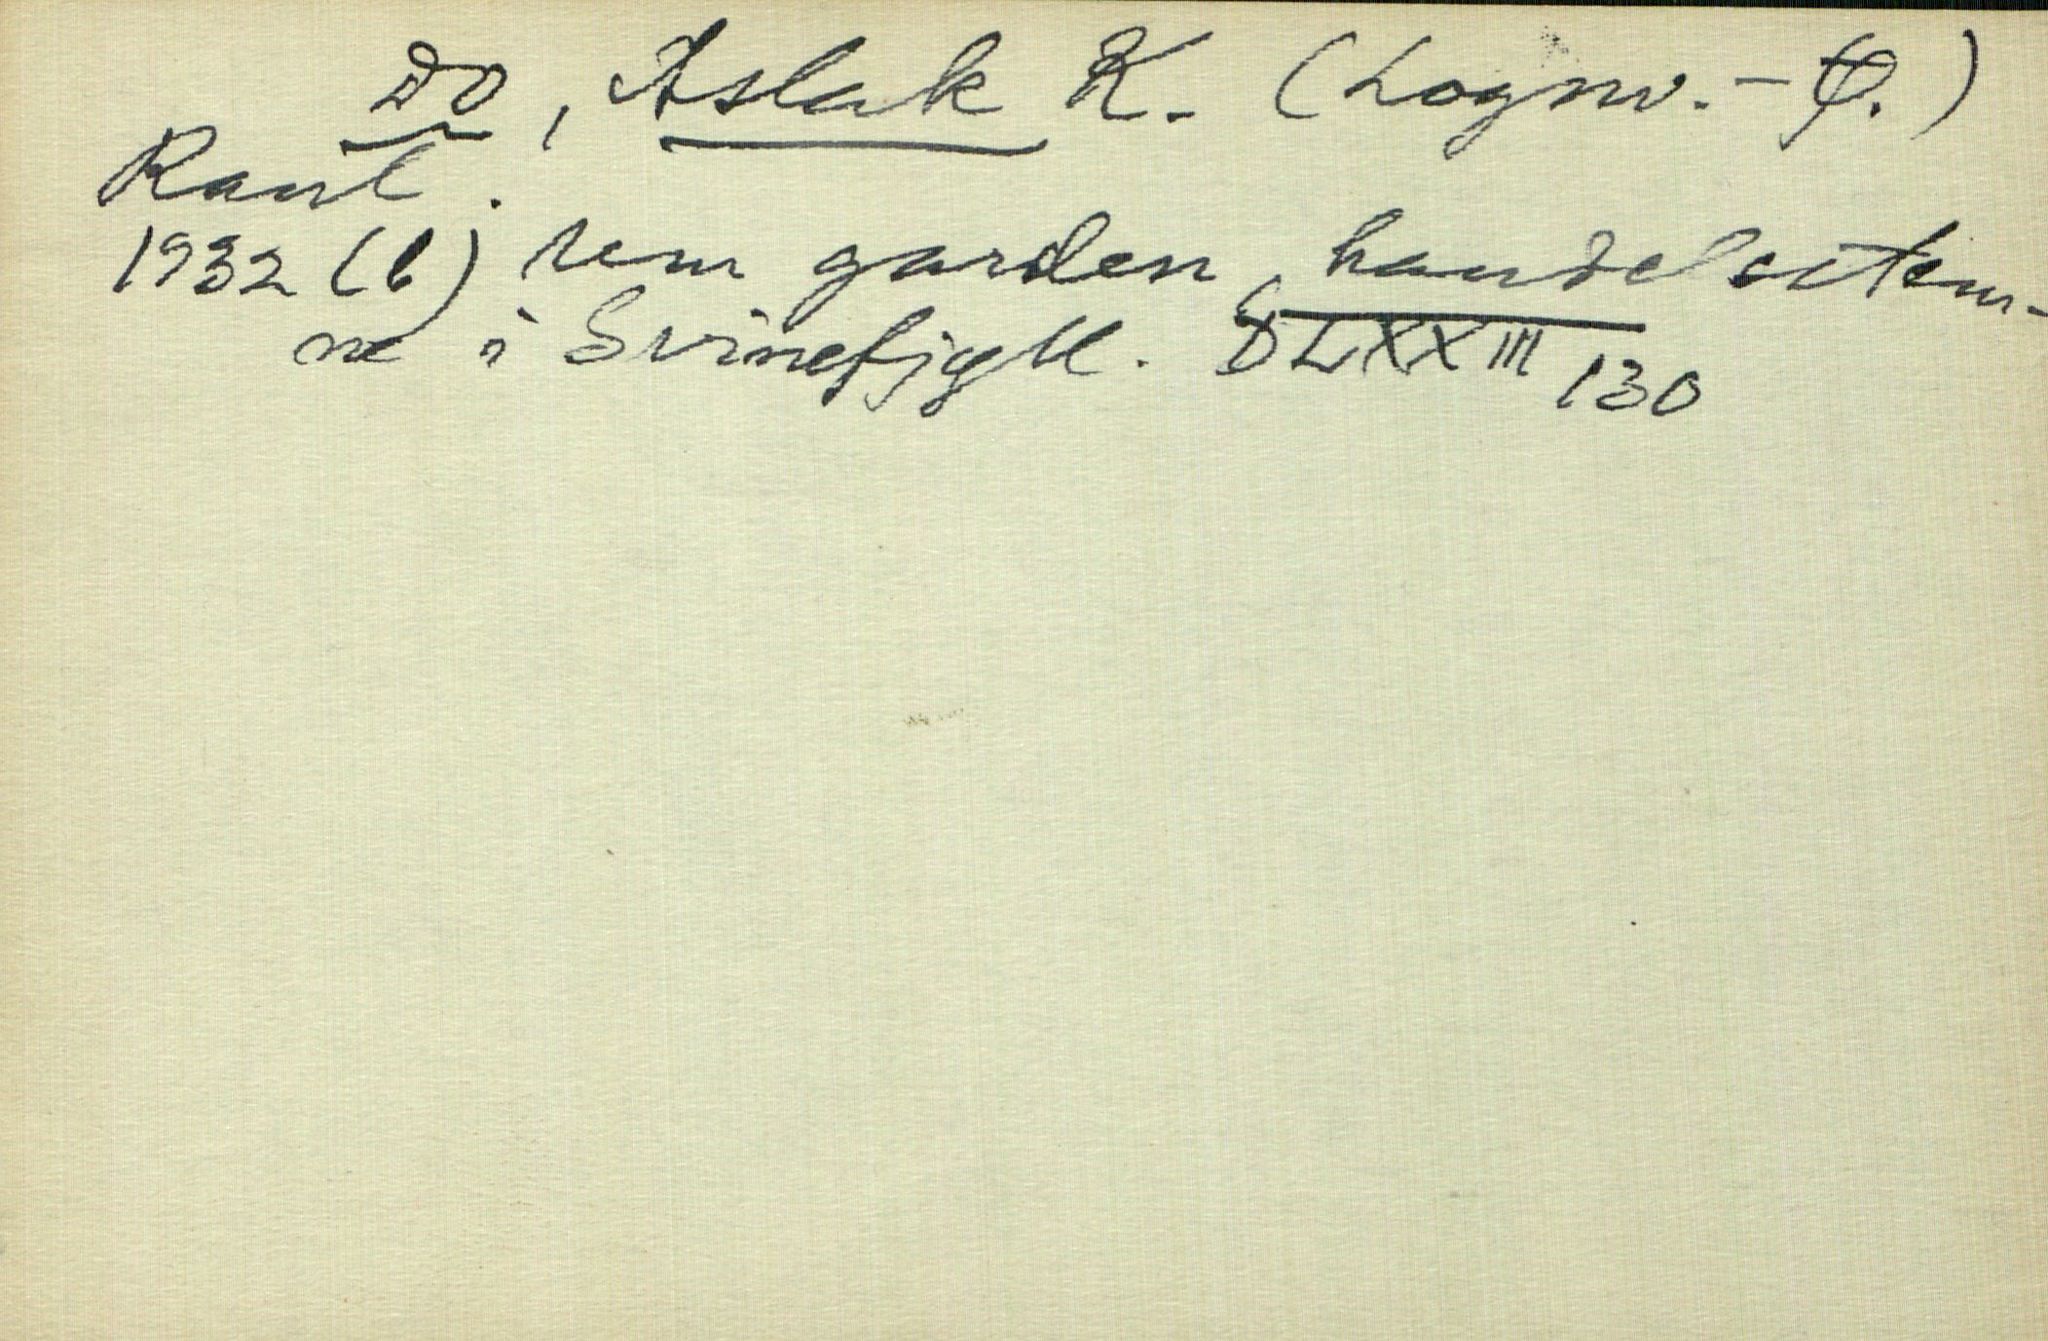 Do, Aslak K. (Lognv.-Q.)
Raul.
1932 (b) um garden, handelsstem-
ne i Svinefjell. DLXXIII 130